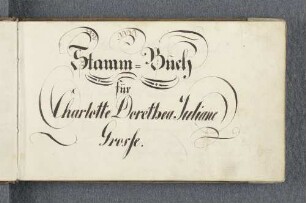 Stamm=Buch
für
Charlotte Dorothea Juliane
Grosse.